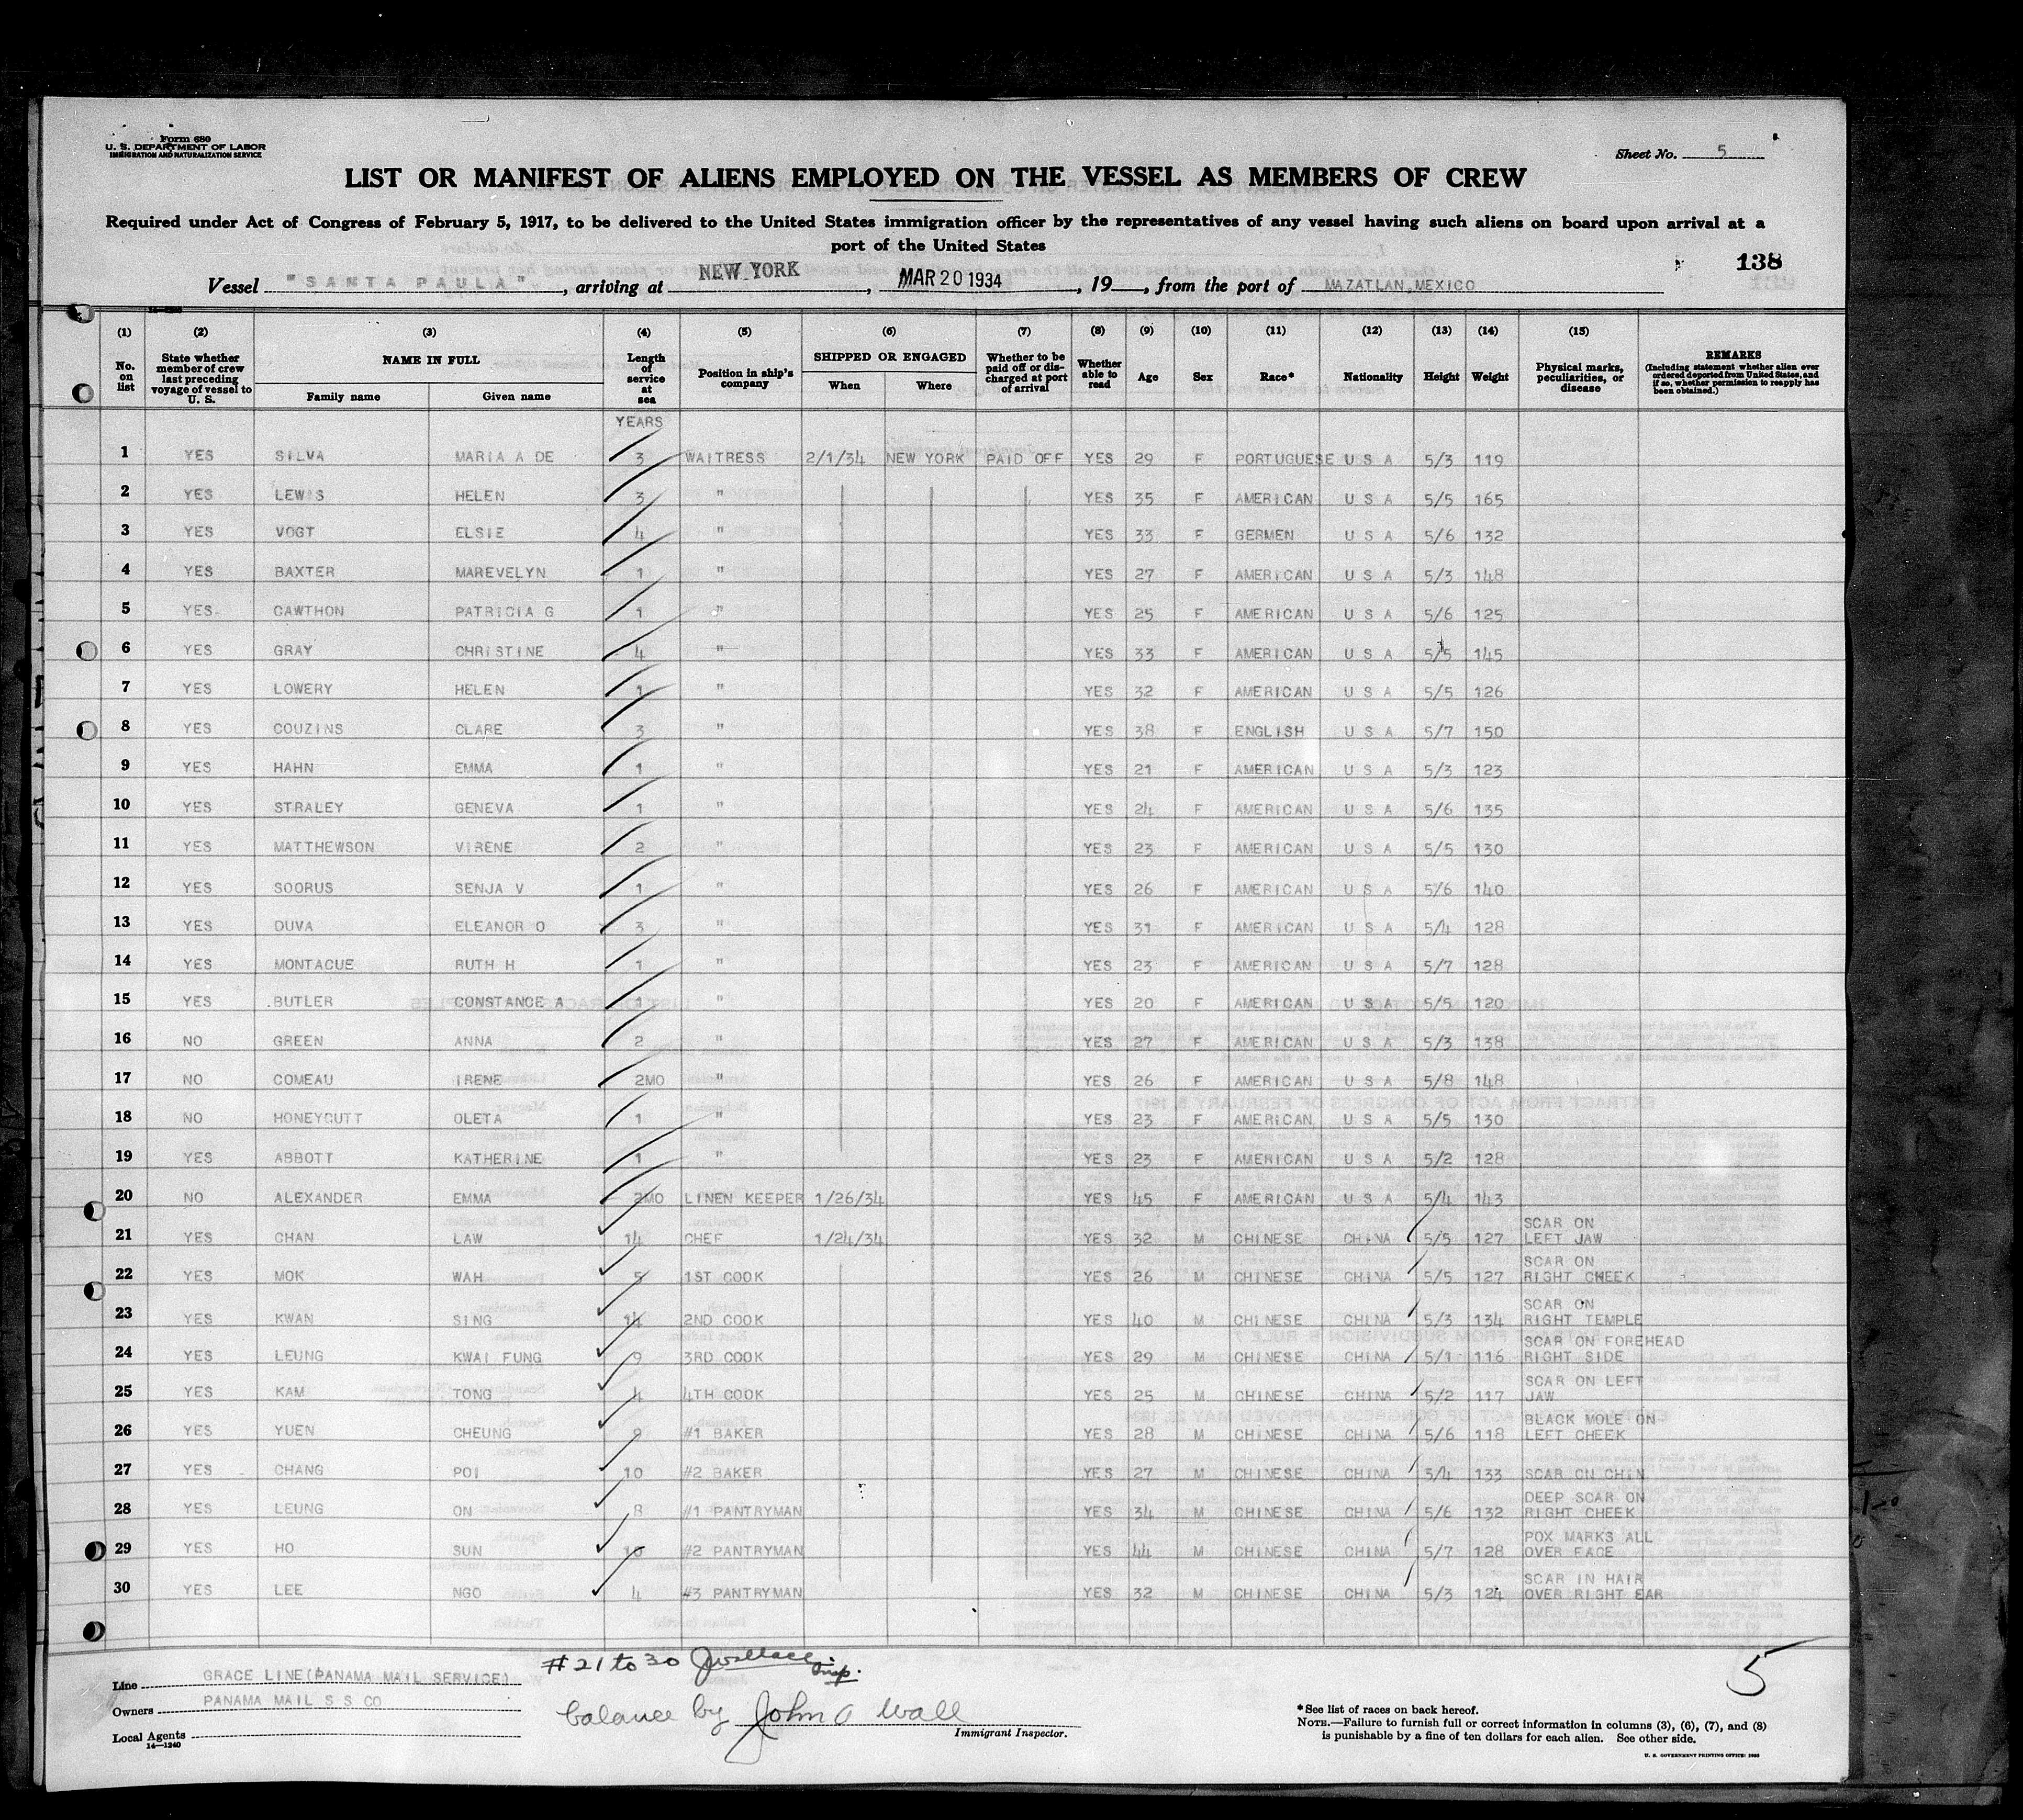 Form 680
U. S. DEPARTMENT OF LABOR
IMMIGRATION AND NATURALIZATION SERVICE
Sheet No. 5
LIST OR MANIFEST OF ALIENS EMPLOYED ON THE VESSEL AS MEMBERS OF CREW
Required under Act of Congress of February 5, 1917, to be delivered to the United States immigration officer by the representatives of any vessel having such aliens on board upon arrival at a
port of the United States
138
Vessel "SANTA PAULA", arriving at NEW YORK, MAR 20 1934, 19, from the port of MAZATLAN, MEXICO
(1) (2) (3) (4) (5) (6) (7) (8) (9) (10) (11) (12) (13) (14) (15)
No. on list State whether member of crew last preceding voyage of vessel to U. S. NAME IN FULL Family name Given name Length of service at sea Position in ship's company SHIPPED OR ENGAGED When Where Whether to be paid off or discharged at port of arrival Whether able to read Age Sex Race* Nationality Height Weight Physical marks, peculiarities, or disease REMARKS (Including statement whether alien ever ordered deported from United States, and if so, whether permission to reapply has been obtained.)
YEARS
1 YES SILVA MARIA A DE 3 WAITRESS 2/1/34 NEW YORK PAID OFF YES 29 F PORTUGUESE U S A 5/3 119
2 YES LEWIS HELEN 3 " YES 35 F AMERICAN U S A 5/5 165
3 YES VOGT ELSIE 4 " YES 33 F GERMEN U S A 5/6 132
4 YES BAXTER MAREVELYN 1 " YES 27 F AMERICAN U S A 5/3 148
5 YES CAWTHON PATRICIA G 1 " YES 25 F AMERICAN U S A 5/6 125
6 YES GRAY CHRISTINE 4 " YES 33 F AMERICAN U S A 5/5 145
7 YES LOWERY HELEN 1 " YES 32 F AMERICAN U S A 5/5 126
8 YES COUZINS CLARE 3 " YES 38 F ENGLISH U S A 5/7 150
9 YES HAHN EMMA 1 " YES 21 F AMERICAN U S A 5/3 123
10 YES STRALEY GENEVA 1 " YES 24 F AMERICAN U S A 5/6 135
11 YES MATTHEWSON VIRENE 2 " YES 23 F AMERICAN U S A 5/5 130
12 YES SOORUS SENJA V 1 " YES 26 F AMERICAN U S A 5/6 140
13 YES DUVA ELEANOR O 3 " YES 31 F AMERICAN U S A 5/4 128
14 YES MONTAGUE RUTH H 1 " YES 23 F AMERICAN U S A 5/7 128
15 YES BUTLER CONSTANCE A 1 " YES 20 F AMERICAN U S A 5/5 120
16 NO GREEN ANNA 2 " YES 27 F AMERICAN U S A 5/3 138
17 NO COMEAU IRENE 2MO " YES 26 F AMERICAN U S A 5/8 148
18 NO HONEYCUTT OLETA 1 " YES 23 F AMERICAN U S A 5/5 130
19 YES ABBOTT KATHERINE 1 " YES 23 F AMERICAN U S A 5/2 128
20 NO ALEXANDER EMMA 2MO LINEN KEEPER 1/26/34 YES 45 F AMERICAN U S A 5/4 143
21 YES CHAN LAW 14 CHEF 1/24/34 YES 32 M CHINESE CHINA 5/5 127 SCAR ON LEFT JAW
22 YES MOK WAH 5 1ST COOK YES 26 M CHINESE CHINA 5/5 127 SCAR ON RIGHT CHEEK
23 YES KWAN SING 14 2ND COOK YES 40 M CHINESE CHINA 5/3 134 SCAR ON RIGHT TEMPLE
24 YES LEUNG KWAI FUNG 9 3RD COOK YES 29 M CHINESE CHINA 5/1 116 SCAR ON FOREHEAD RIGHT SIDE
25 YES KAM TONG 4 4TH COOK YES 25 M CHINESE CHINA 5/2 117 SCAR ON LEFT JAW
26 YES YUEN CHEUNG 9 #1 BAKER YES 28 M CHINESE CHINA 5/6 118 BLACK MOLE ON LEFT CHEEK
27 YES CHANG POI 10 #2 BAKER YES 27 M CHINESE CHINA 5/4 133 SCAR ON CHIN
28 YES LEUNG ON 8 #1 PANTRYMAN YES 34 M CHINESE CHINA 5/6 132 DEEP SCAR ON RIGHT CHEEK
29 YES HO SUN 10 #2 PANTRYMAN YES 44 M CHINESE CHINA 5/7 128 POX MARKS ALL OVER FACE
30 YES LEE NGO 4 #3 PANTRYMAN YES 32 M CHINESE CHINA 5/3 124 SCAR IN HAIR OVER RIGHT EAR
#21 to 30 JWallace Insp.
5
Line GRACE LINE(PANAMA MAIL SERVICE)
Owners PANAMA MAIL S S CO
Local Agents
14—1240
balance by John A Wall
Immigrant Inspector.
*See list of races on back hereof.
NOTE.—Failure to furnish full or correct information in columns (3), (6), (7), and (8)
is punishable by a fine of ten dollars for each alien. See other side.
U. S. GOVERNMENT PRINTING OFFICE: